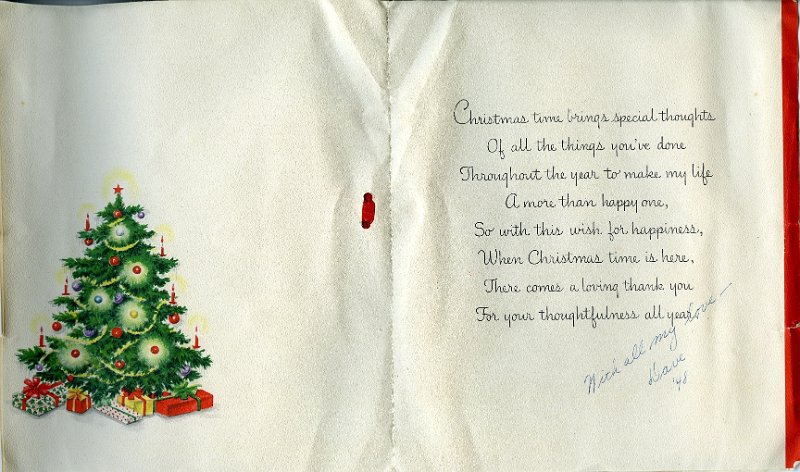 Christmas time brings special thoughts
Of all the things you've done
Throughout the year to make my life
A more than happy one,
So with this wish for happiness,
When Christmas time is here,
There comes a loving thank you
For your thoughtfulness all year.
With all my love —
Dave
'48